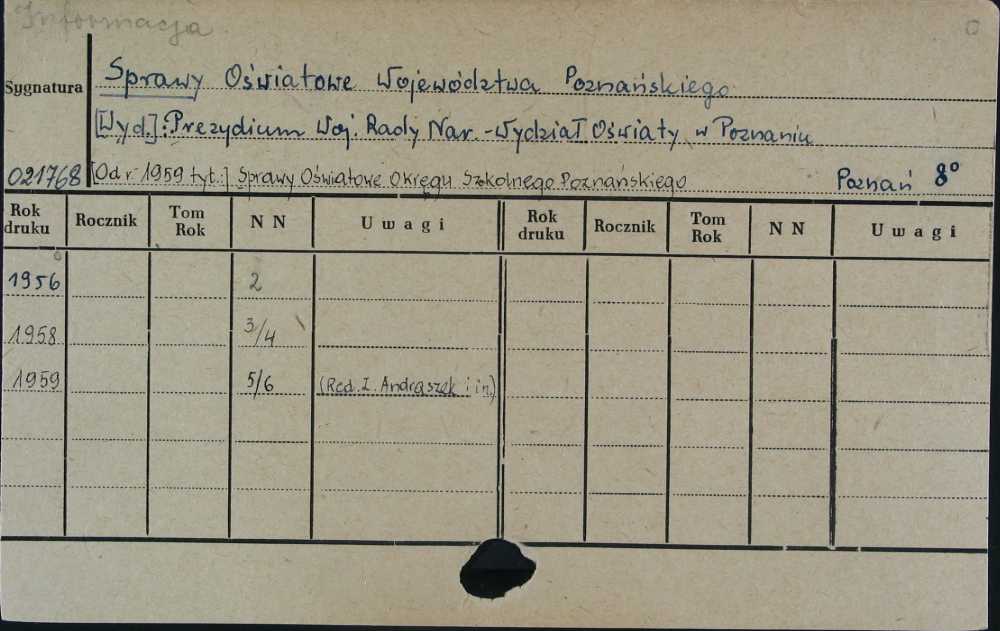 Informacja
Sygnatura
Sprawy Oświatowe Województwa Poznańskiego
[Wyd.]: Prezydium Woj. Rady Nar. - Wydział Oświaty w Poznaniu
021768 [Od r. 1959 tyt.:] Sprawy Oświatowe Okręgu Szkolnego Poznańskiego Poznań 8°
Rok druku Rocznik Tom Rok N N Uwagi Rok druku Rocznik Tom Rok N N Uwagi
1956 2
1958 3/4
1959 5/6 (Red. I. Andraszek i in.)